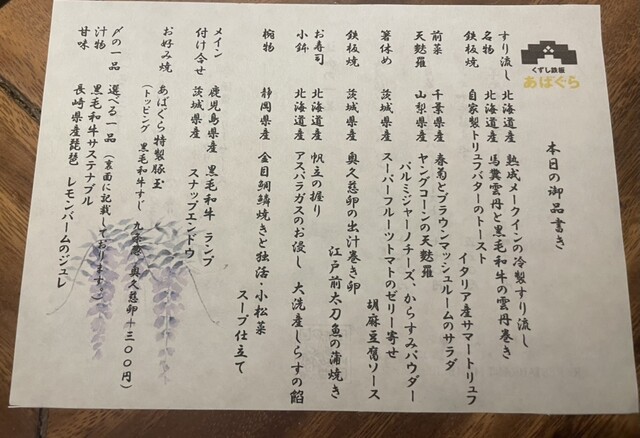 くずし鉄板
あばぐら
本日の御品書き
すり流し 北海道産 熟成メークインの冷製すり流し
名物 北海道産 馬糞雲丹と黒毛和牛の雲丹巻き
鉄板焼 自家製トリュフバターのトースト
イタリア産サマートリュフ
前菜 千葉県産 春菊とブラウンマッシュルームのサラダ
天麩羅 山梨県産 ヤングコーンの天麩羅
パルミジャーノチーズ、からすみパウダー
箸休め 茨城県産 スーパーフルーツトマトのゼリー寄せ
胡麻豆腐ソース
鉄板焼 茨城県産 奥久慈卵の出汁巻き卵
江戸前太刀魚の蒲焼き
お寿司 北海道産 帆立の握り
小鉢 北海道産 アスパラガスのお浸し 大洗産しらすの餡
椀物 静岡県産 金目鯛鱗焼きと独活・小松菜
スープ仕立て
メイン 鹿児島県産 黒毛和牛 ランプ
付け合せ 茨城県産 スナップエンドウ
お好み焼 あばぐら特製豚玉
(トッピング 黒毛和牛すじ 九条葱 奥久慈卵+三〇〇円)
〆の一品 選べる一品(裏面に記載しております。)
汁物 黒毛和牛サステナブル
甘味 長崎県産琵琶 レモンバームのジュレ